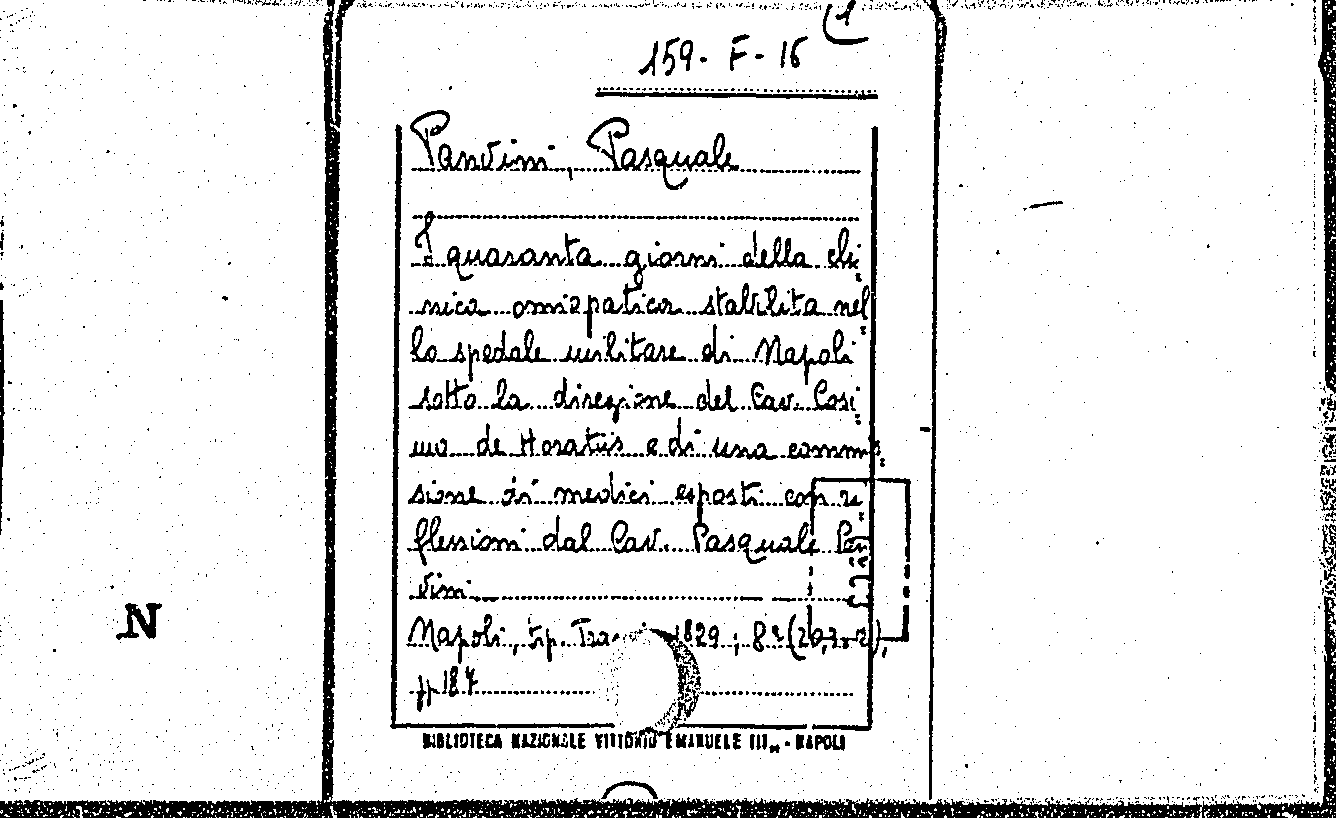 (1
159. F. 15
Panvini, Pasquale
I quaranta giorni della cli
nica omiopatica stabilita nel
lo spedale militare di Napoli
sotto la direzione del Cav. Cosi
mo de Horatiis e di una commis
sione di medici esposti con ri
flessioni dal Cav. Pasquale Pan
vini
Napoli, tip. 1829; 8º
pp 187
N
BIBLIOTECA NAZIONALE VITTORIO EMANUELE III„ - NAPOLI